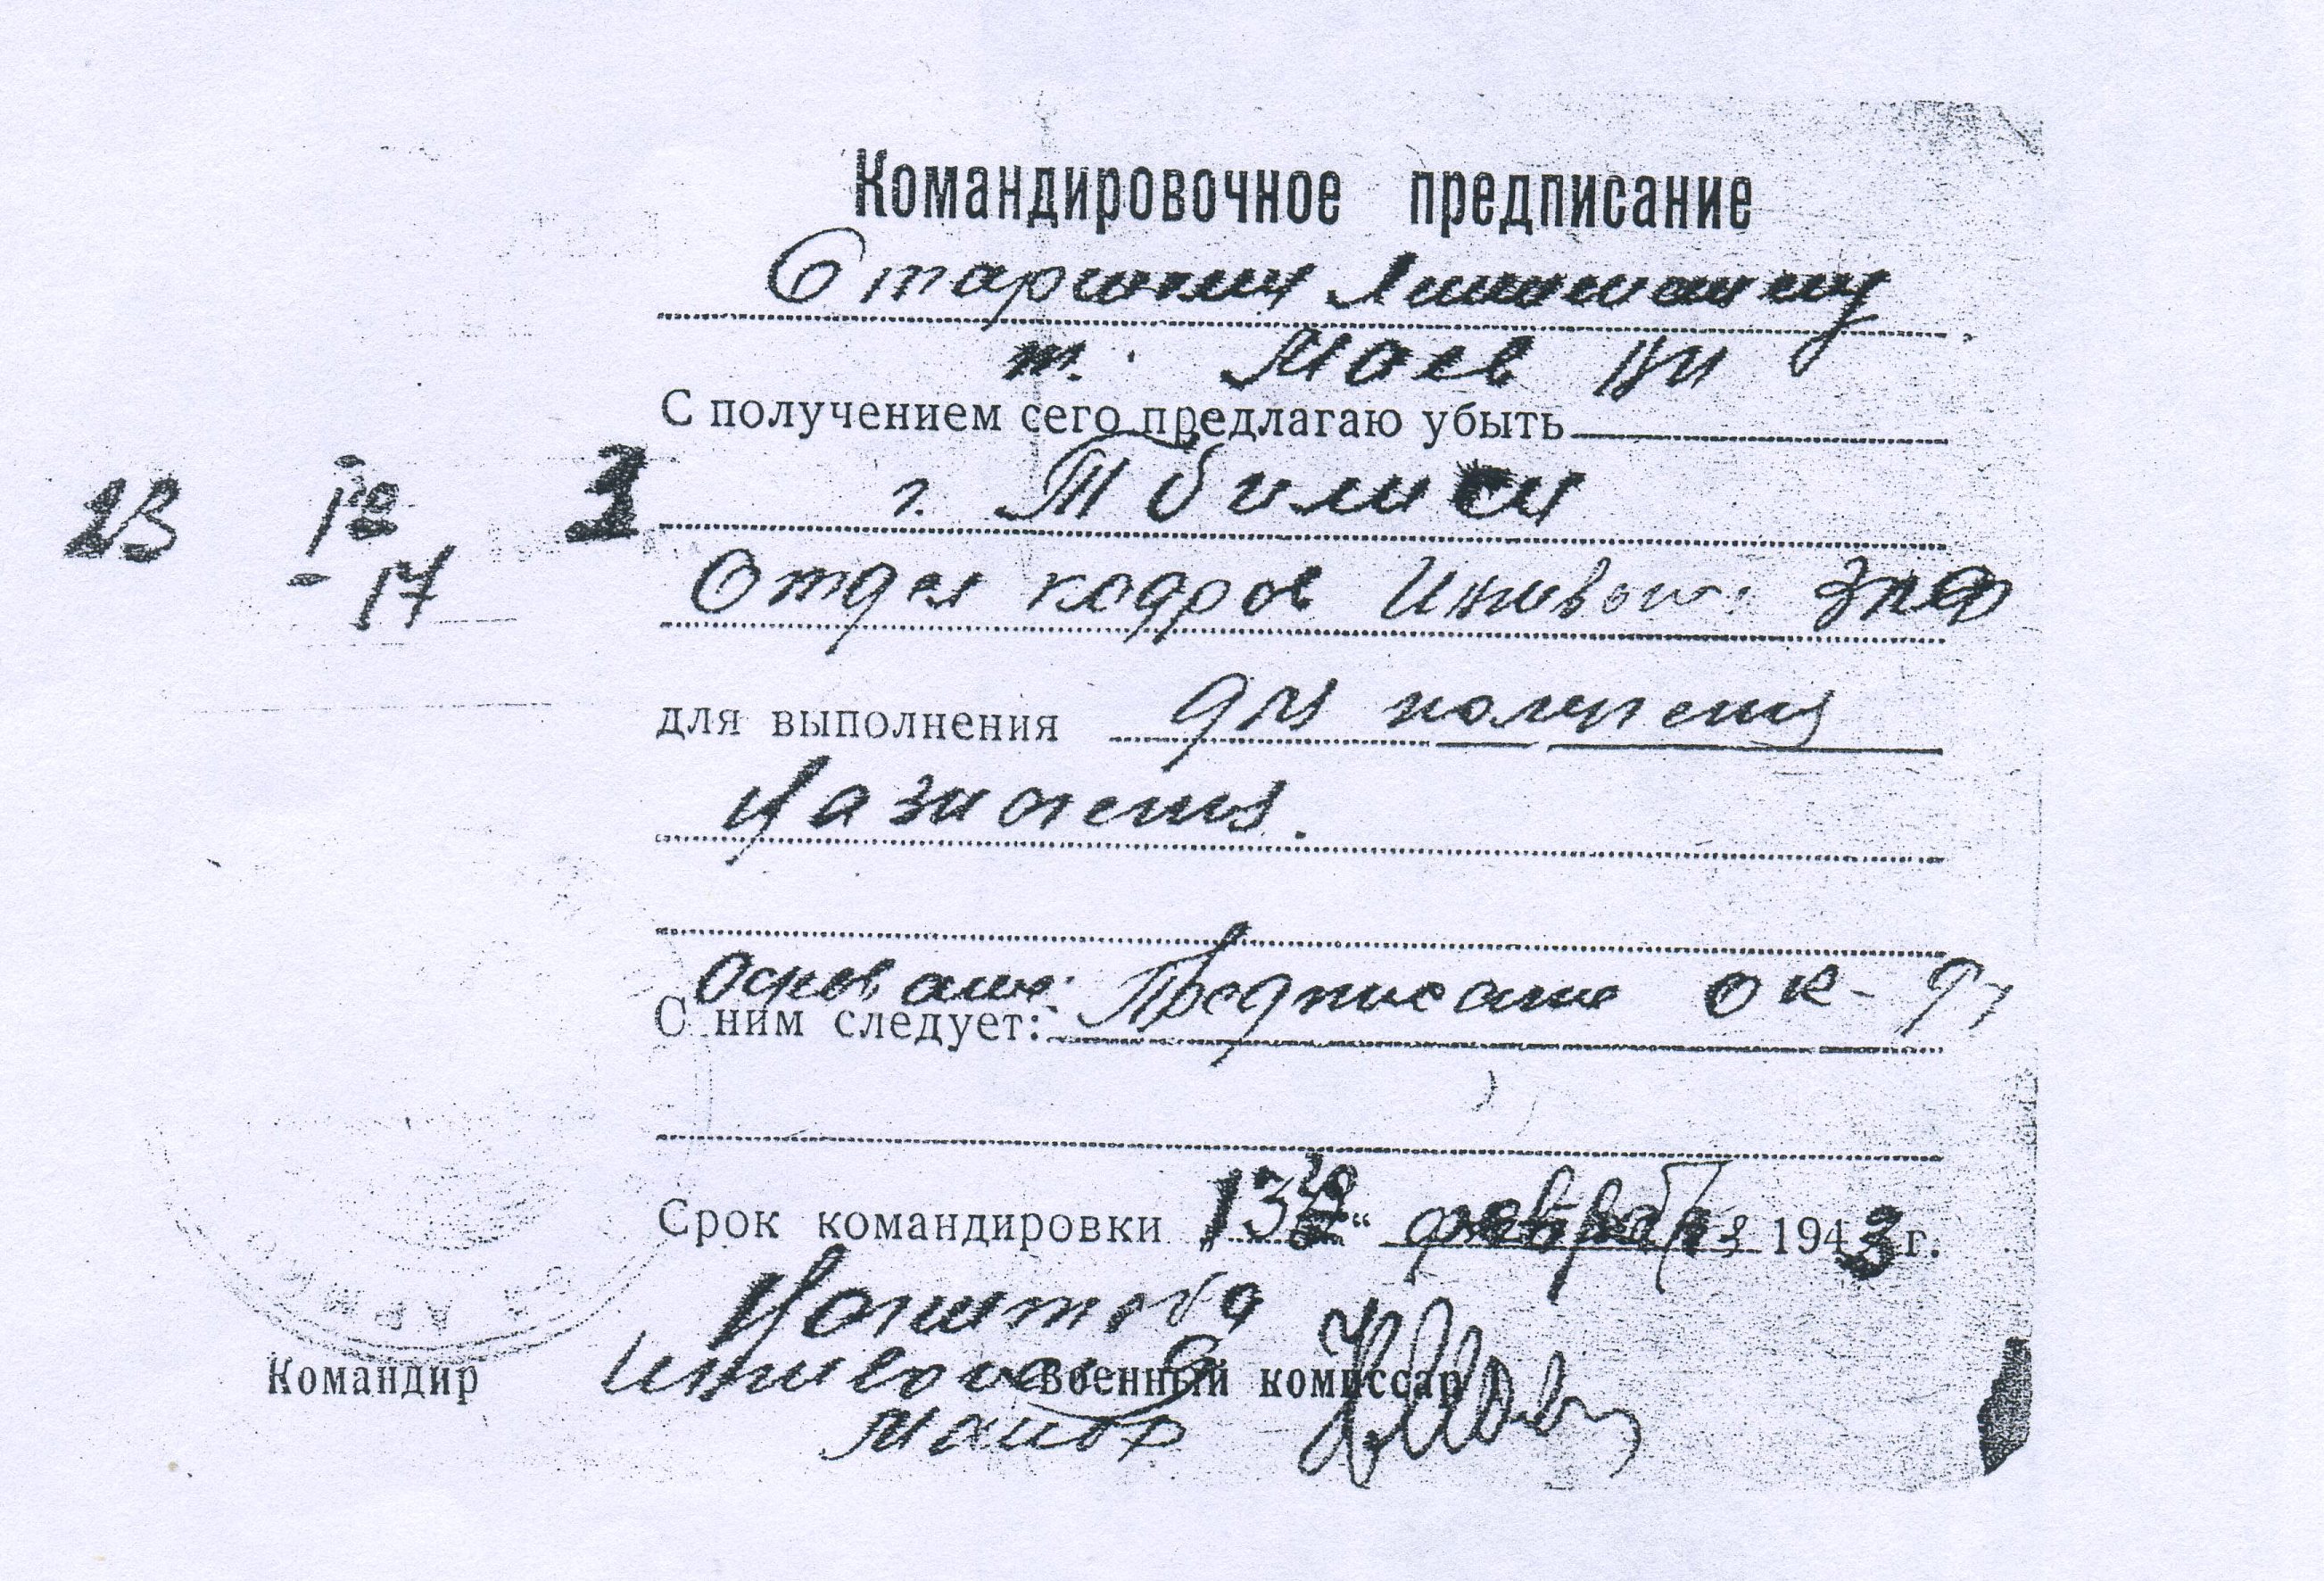 Командировочное предписание
Старший Лейтенант
т. Маев
С получением сего предлагаю убыть
23 3 г. Тбилиси
17 Отдел кадров Инжвойск ЗКФ
для выполнения для получения
назначения.
Основание: Предписание ОК
С ним следует:
Срок командировки „13“ февраля 1943 г.
Нач штаба
Командир Военный комиссар
майор